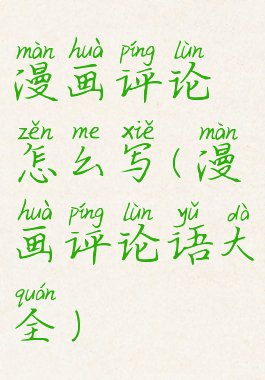 màn huà píng lùn
漫画评论
zěn me xiě màn
怎么写(漫
huà píng lùn yǔ dà
画评论语大
quán
全)